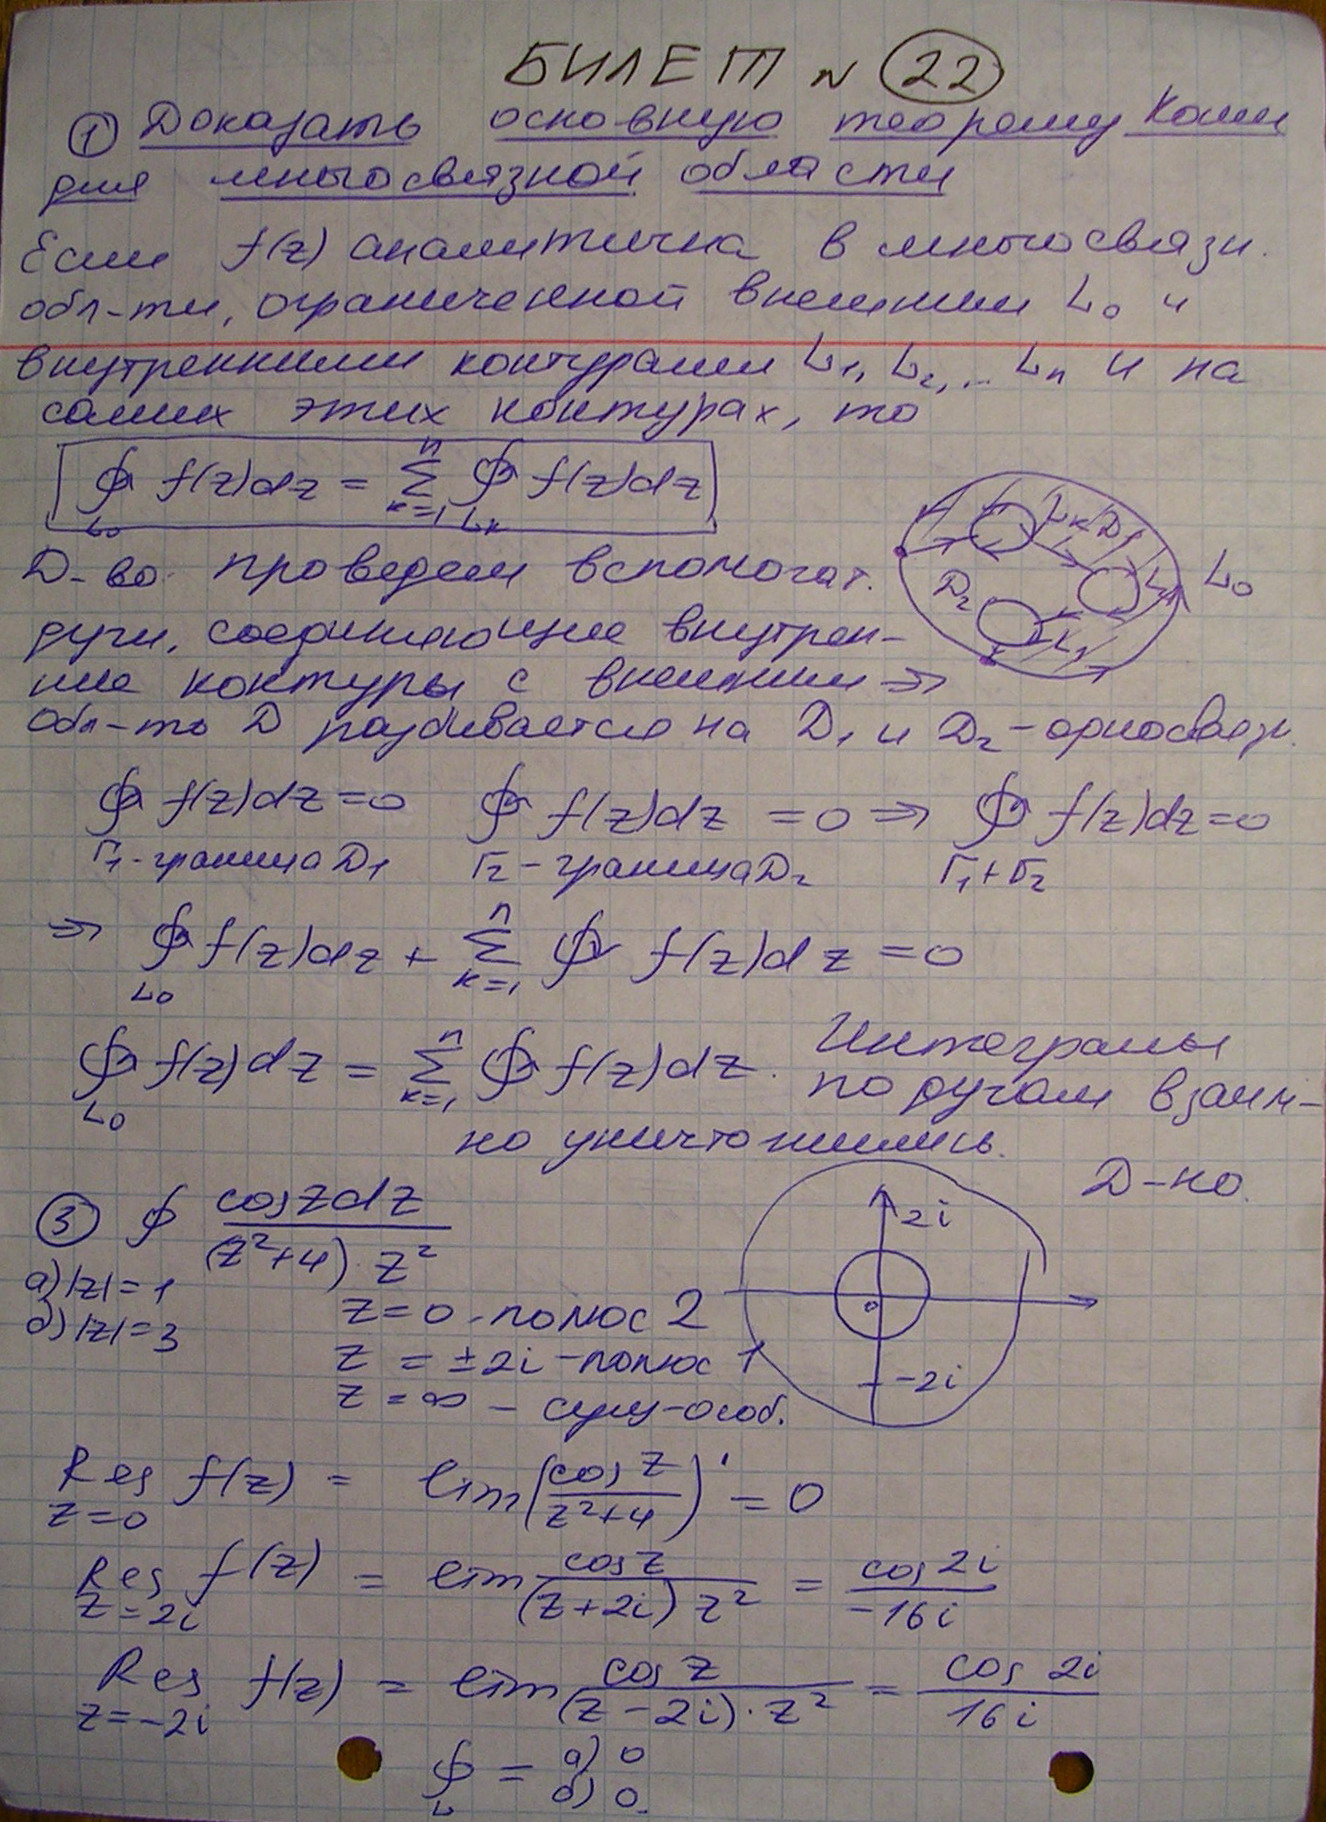 БИЛЕТ N 22
① Доказать основную теорему Коши
для многосвязной области
Если f(z) аналитична в многосвязн.
обл-ти, ограниченной внешним L₀ и
внутренними контурами L₁, L₂, ... Lₙ и на
самих этих контурах, то
∮ f(z)dz = ∑ ∮ f(z)dz
L₀ k=1 n Lₖ
Lₖ D₁
D₂ L₁ L₀
Д-во. проведем вспомогат.
дуги, соединяющие внутрен-
ние контуры с внешним ⇒
Обл-ть D разбивается на D₁ и D₂ - односвязн.
∮ f(z)dz=0 ∮ f(z)dz = 0 ⇒ ∮ f(z)dz=0
Г₁ - граница D₁ Г₂ - граница D₂ Г₁+Г₂
⇒ ∮ f(z)dz + ∑ ∮ f(z)dz = 0
L₀ k=1 n
∮ f(z)dz = ∑ ∮ f(z)dz. Интегралы
L₀ k=1 n по дугам взаим-
но уничтожились.
Д-но.
③ ∮ cos z dz / (z²+4)·z²
а) |z|=1
б) |z|=3
2i
0
-2i
z=0 - полюс 2
z = ±2i - полюс 1
z = ∞ - сущ-особ.
Res f(z) = lim (cos z / z²+4)' = 0
z=0
Res f(z) = lim cos z / (z+2i) z² = cos 2i / -16i
z=2i
Res f(z) = lim cos z / (z-2i)·z² = cos 2i / 16i
z=-2i
∮ = а) 0
L б) 0.